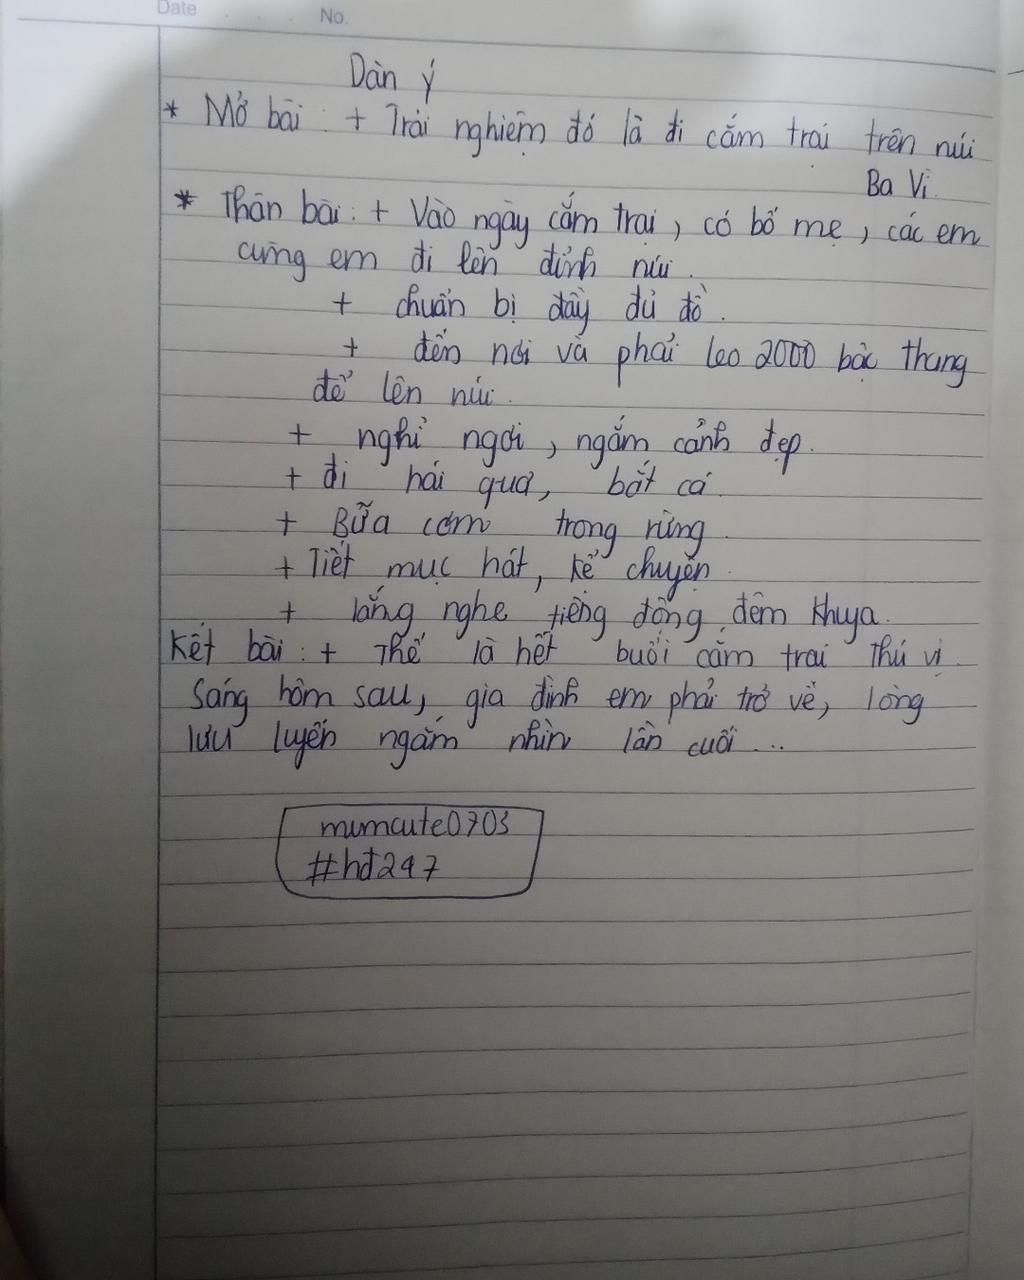 Date No.
Dàn ý
* Mở bài : + Trải nghiệm đó là đi cắm trại trên núi
Ba Vì.
* Thân bài : + Vào ngày cắm trại, có bố mẹ, các em
cùng em đi lên đỉnh núi.
+ chuẩn bị đầy đủ đồ.
+ đến nơi và phải leo 2000 bậc thang
để lên núi.
+ nghỉ ngơi, ngắm cảnh đẹp.
+ đi hái quả, bắt cá.
+ Bữa cơm trong rừng.
+ Tiết mục hát, kể chuyện.
+ lắng nghe tiếng động đêm khuya.
Kết bài : + Thế là hết buổi cắm trại thú vị.
Sáng hôm sau, gia đình em phải trở về, lòng
lưu luyến ngắm nhìn lần cuối ...
mumcute0703
#hđ247